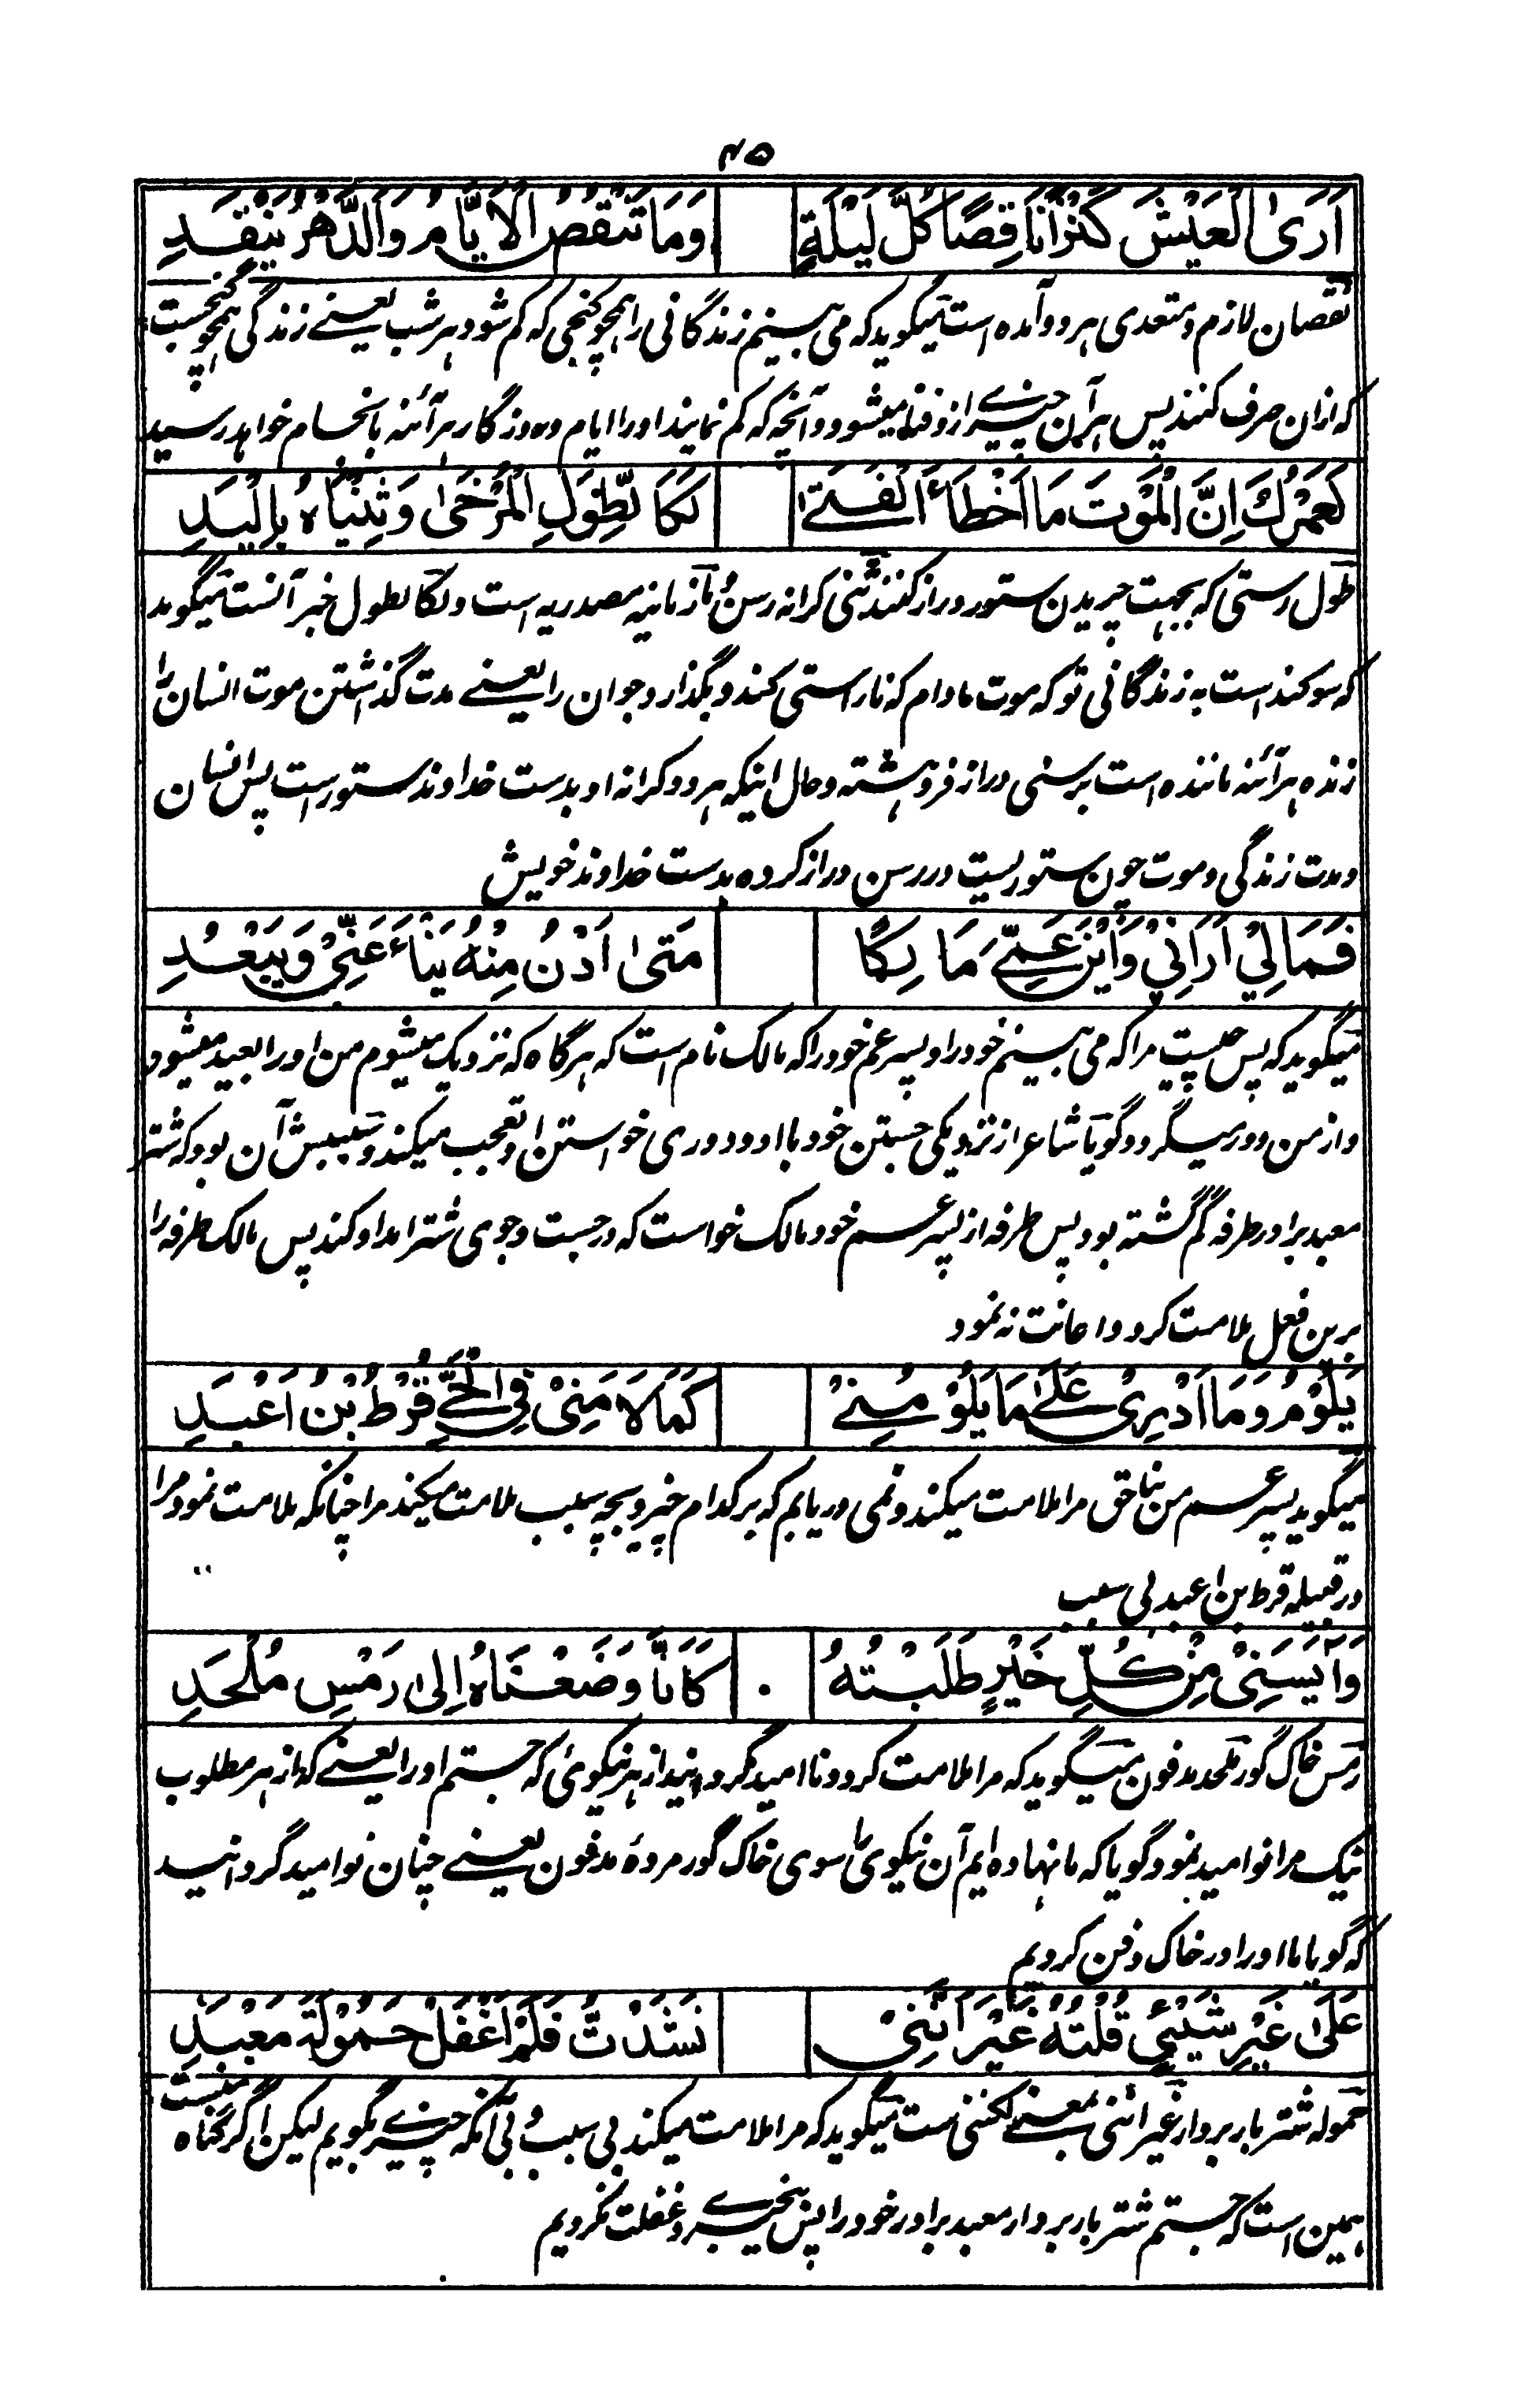 ۴۵
اَرَىٰ الْعَيْشَ كَنْزًا نَاقِصًا كُلَّ لَيْلَةٍ وَمَا تَنْقُصُ الْاَيَّامُ وَالدَّهْرُ يَنْفَدِ
نقصان لازم و متعدی هر دو آمده است میگوید که می بینم زندگانی را همچو گنجی که کم شود هر شب یعنے زندگی همچو گنجست
که ازان صرف کنند پس هر آن چیزے ازو فنا میشود و آنچه که کم نمایند او را ایام و روزگار هر آئنه بانجام خواهد رسید
لَعَمْرُكَ اِنَّ الْمَوْتَ مَا اَخْطَأَ الْفَتَىٰ لَكَا لطِّوَلِ الْمُرْخَىٰ وَثِنْيَاهُ بِالْيَدِ
طول رستی که بجهت چریدن ستور دراز کنند ثنی کرانه رسن ما زمانیه مصدریه است و لکا لطول خبر آنست میگوید
که سوکند است به زندگانی تو که موت مادام که ناراستی کند و بگذارد جوان را یعنے مدت گذاشتن موت انسان را
زنده هر آئنه ماننده است برسنی دراز فروهشته و حال اینکه هر دو کرانه او بدست خداوند ستور است پس انسان
و مدت زندگی و موت چون ستوریست در رسن دراز کرده بدست خداوند خویش
فَمَالِيْ اَرَانِيْ وَابْنَ عَمِّے مَالِكًا مَتَىٰ اَدْنُ مِنْهُ يَنْأَ عَنِّيْ وَيَبْعُدِ
میگوید که پس چیست مرا که می بینم خود را و پسر عم خود را که مالک نام است که هرگاه که نزدیک میشوم من او را بعید میشود
و از من دور میگردد گویا شاعر از نزدیکی جستن خود با او و دوری خواستن او تعجب میکند و سببش آن بود که شتر
معبد برادر طرفه گم گشته بود پس طرفه از پسر عم خود مالک خواست که در جست و جوی شتر امداد کند پس مالک طرفه را
برین فعل ملامت کرد و اعانت نه نمود
يَلُوْمُ وَمَا اَدْرِىْ عَلَىٰ مَا يَلُوْمُنِيْ كَمَا لَامَنِىْ فِى الْحَيِّ قُرْطُ بْنُ اَعْبَدِ
میگوید پسر عم من بناحق مرا ملامت میکند و نمی دریابم که بر کدام چیز و بچه سبب ملامت میکند مرا چنانکه ملامت نمود مرا
در قبیله قرط بن اعبد بی سبب
وَاَيْسَنِىْ مِنْ كُلِّ خَيْرٍ طَلَبْتُهُ كَاَنَّا وَضَعْنَاهُ اِلىٰ رَمْسِ مُلْحَدِ
رمس خاک گور ملحد مدفون میگوید که مرا ملامت کرد و نا امید گردانید از هر نیکوئی که جستم او را یعنے که از هر مطلوب
نیک مرا نوامید نمود گویا که ما نهاده ایم آن نیکوی را سوی خاک گور مردهٔ مدفون یعنے چنان نوامید گردانید
که گویا ما او را در خاک دفن کردیم
عَلَىٰ غَيْرِ شَيْئٍ قُلْتُهُ غَيْرَ اَنَّنِىْ نَشَدْتُ فَلَمْ اَغْفَلْ حَمُوْلَةَ مَعْبَدِ
حموله شتر بار بردار غیر اننی بمعنے لکننی ست میگوید که مرا ملامت میکند بی سبب و بی آنکه چیزے بگویم لیکن اگر گناه منست
همین است که جستم شتر بار بردار معبد برادر خود را پس بیخبرے و غفلت نکردیم